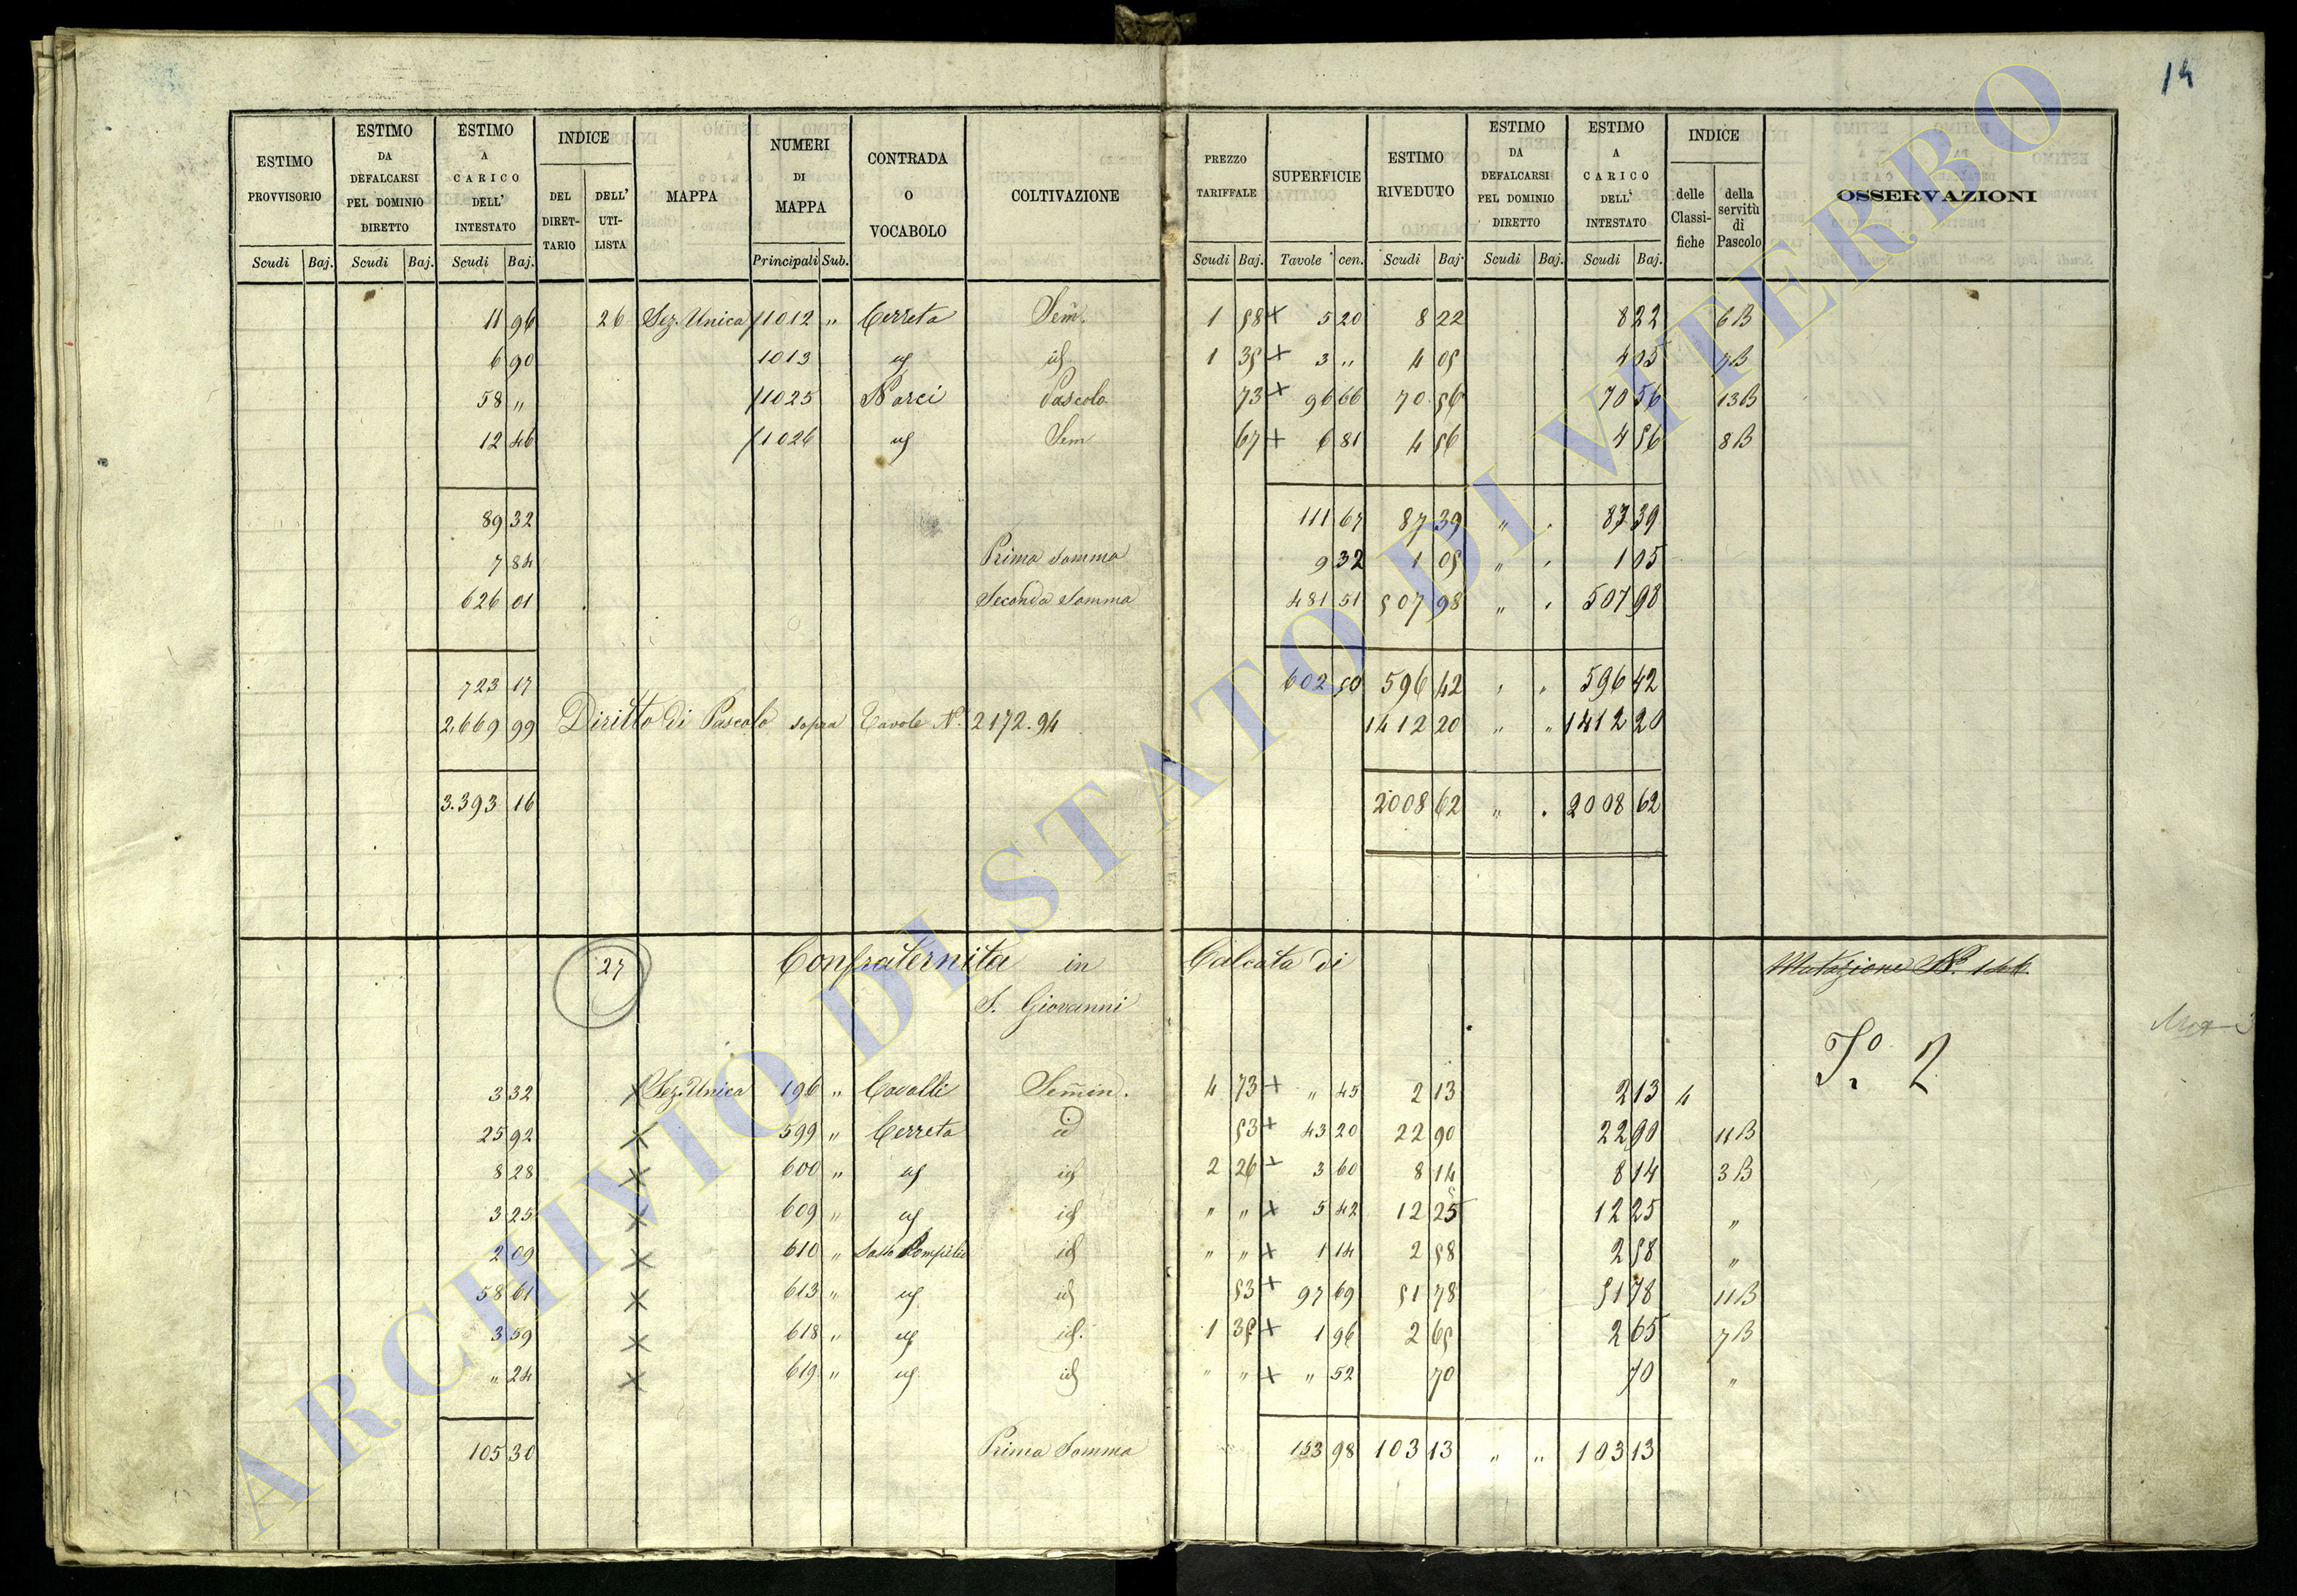 14
ESTIMO PROVVISORIO | ESTIMO DA DEFALCARSI PEL DOMINIO DIRETTO | ESTIMO A CARICO DELL' INTESTATO | INDICE DEL DIRETTARIO | DELL' UTILISTA | MAPPA | NUMERI DI MAPPA | CONTRADA O VOCABOLO | COLTIVAZIONE | PREZZO TARIFFALE | SUPERFICIE | ESTIMO RIVEDUTO | ESTIMO DA DEFALCARSI PEL DOMINIO DIRETTO | ESTIMO A CARICO DELL' INTESTATO | INDICE delle Classifiche | della servitù di Pascolo | OSSERVAZIONI
Scudi | Baj. | Scudi | Baj. | Scudi | Baj. | Principali | Sub. | Scudi | Baj. | Tavole | cen. | Scudi | Baj. | Scudi | Baj. | Scudi | Baj.
11 96 26 Sez. Unica /1012 " Cerreta Sem. 1 58 + 5 20 8 22 8 22 6B
6 90 1013 id 1 35 + 3 " 4 05 4 05 7B
58 " /1025 Narci Pascolo 73 + 96 66 70 56 70 56 13B
12 46 /1026 Sem 67 + 6 81 4 56 4 56 8B
89 32 111 67 87 39 " " 87 39
7 84 Prima Somma 9 32 1 05 " " 1 05
626 01 Seconda Somma 481 51 507 98 " " 507 98
723 17 602 50 596 42 " " 596 42
2,669 99 Diritto di Pascolo sopra Tavole N. 2172.94 1412 20 " " 1412 20
3.393 16 2008 62 " " 2008 62
27 Confraternita in Calcata di Mutazione N. 144.
S. Giovanni
To. 2
3 32 x Sez. Unica 196 " Cavalli Semin. 4 73 + " 45 2 13 2 13 4
25 92 x 599 " Cerreta id 53 + 43 20 22 90 22 90 11B
8 28 x 600 " id 2 26 + 3 60 8 14 8 14 3B
3 25 x 609 " id " " x 5 42 12 25 12 25 "
2 09 x 610 " Sasso Pompilio id " " x 1 14 2 58 2 58 "
58 61 x 613 " id 53 + 97 69 51 78 51 78 11B
3 59 x 618 " id. 1 35 + 1 96 2 65 2 65 7B
" 24 x 619 " id " " x " 52 70 70 "
105 30 Prima Somma 153 98 103 13 " " 103 13
ARCHIVIO DI STATO DI VITERBO